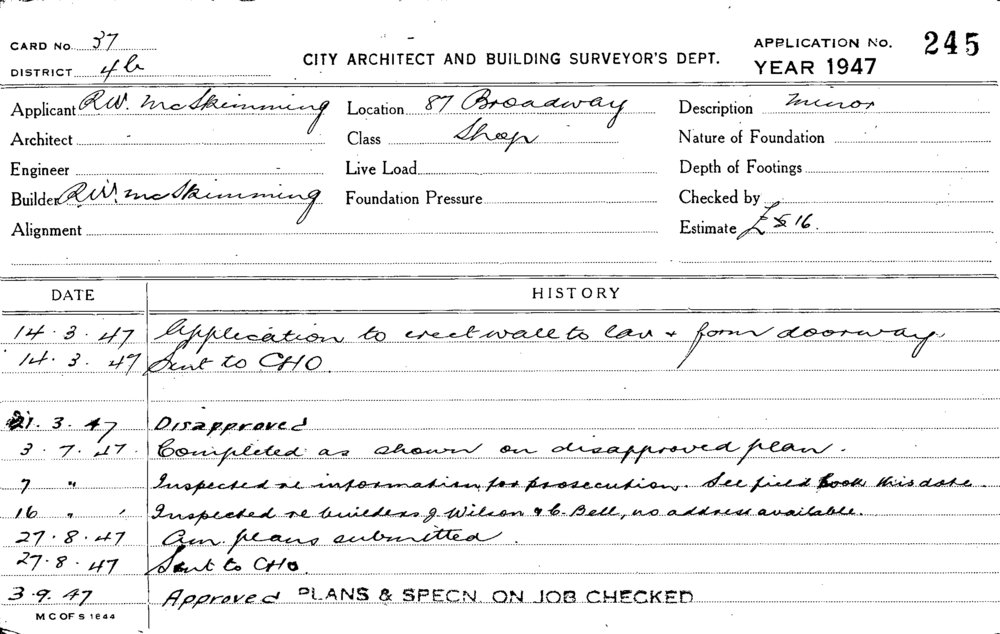 CARD No. 37
DISTRICT 4b
CITY ARCHITECT AND BUILDING SURVEYOR'S DEPT.
APPLICATION No. 245
YEAR 1947
Applicant R.W. McSkimming Location 87 Broadway Description Minor
Architect Class Shop Nature of Foundation
Engineer Live Load Depth of Footings
Builder R.W. McSkimming Foundation Pressure Checked by
Alignment Estimate £ 16.
DATE HISTORY
14.3.47 Application to erect wall to lav + form doorway
14.3.47 Sent to CHO.
21.3.47 Disapproved
3.7.47. Completed as shown on disapproved plan.
7 " Inspected re information for prosecution. See field book this date.
16 " ' Inspected re builders J. Wilson & C. Bell, no address available.
27.8.47 Am. plans submitted.
27.8.47 Sent to CHO.
3.9.47 Approved PLANS & SPECN. ON JOB CHECKED
M C OF S 1844